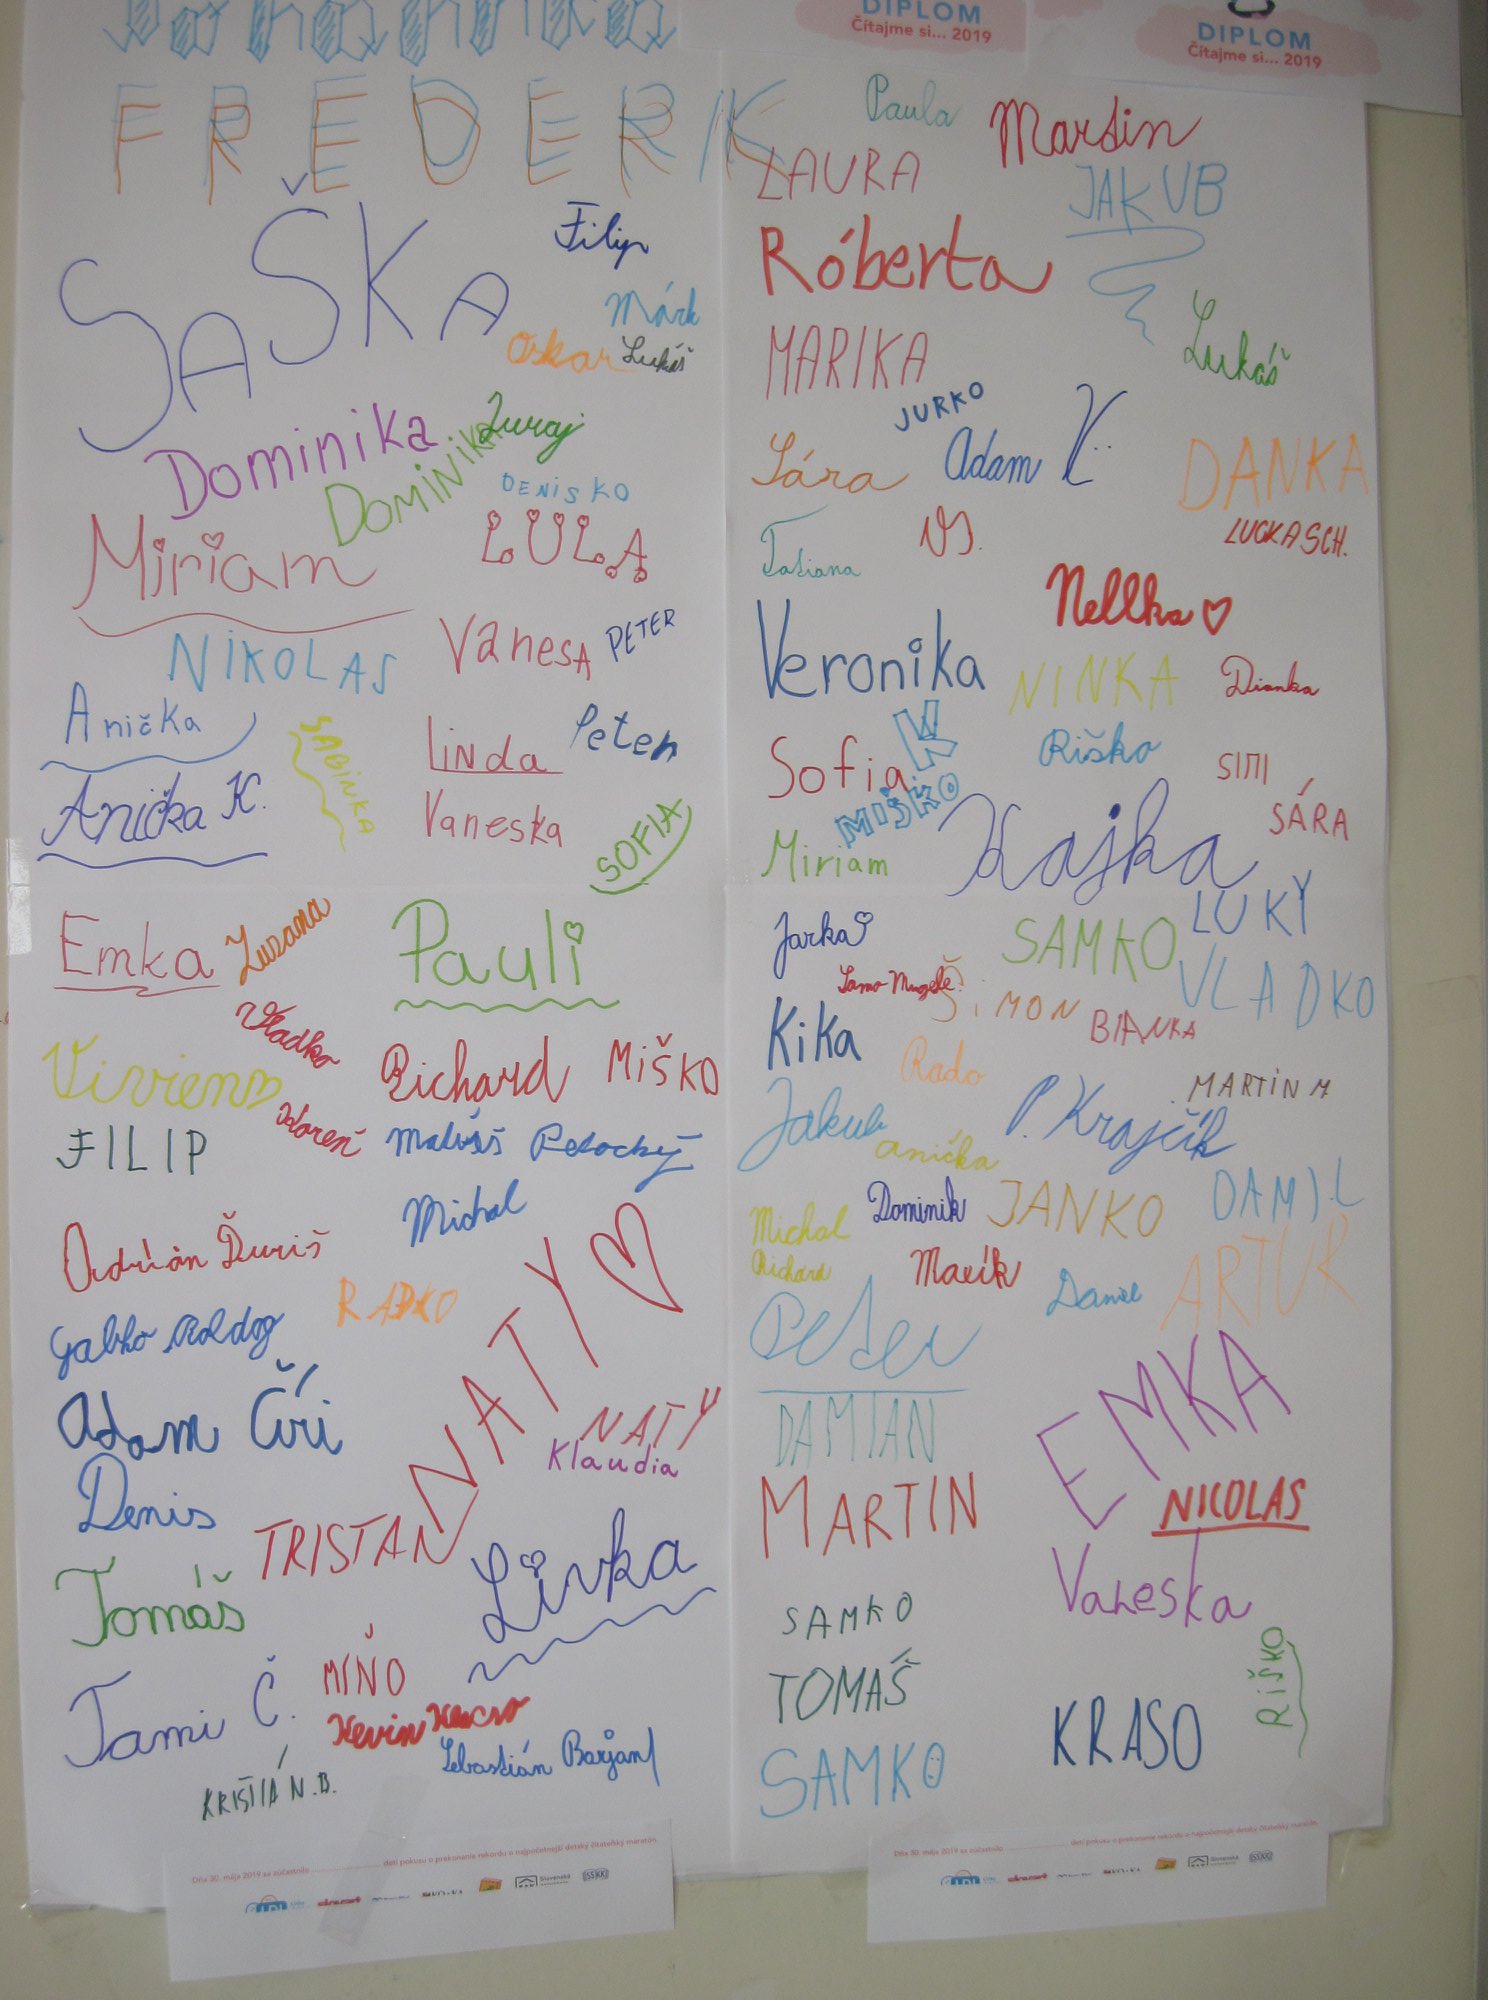 DIPLOM
Čítajme si... 2019
DIPLOM
Čítajme si... 2019
FREDERIK
SAŠKA
Filip
Márk
Oskar
Lukáš
Dominika
DOMINIKA
Juraj
DENISKO
Miriam
LULA
NIKOLAS
Vanesa
PETER
Anička
SABINKA
Linda
Peter
Anička K.
Vaneska
SOFIA
Emka
Zuzana
Pauli
Vladko
Vivien
Richard
MIŠKO
FILIP
Matúš
Michal
Adrián Ďuriš
RADKO
NATY
Gabko
Adam Číri
NATY
Klaudia
Denis
TRISTAN
Livka
Tomáš
Tami Č.
MIŇO
Kevin
Sebastián
KRISTIÁN.B.
Paula
Martin
LAURA
JAKUB
Róberta
MARIKA
Lukáš
JURKO
Sára
Adam K.
DANKA
Tatiana
LUCKA SCH.
Nellka
Veronika
NINKA
Dianka
K
Sofia
Riško
SIMI
MIŠKO
SÁRA
Miriam
Kajka
Jarka
SAMKO
LUKY
Samo
ŠIMON
VLADKO
Kika
BIANKA
Rado
MARTIN M
Jakub
P. Krajčík
anička
Michal
Dominik
JANKO
DAMIL
Richard
Macík
Daniel
ARTUR
Peter
DAMIAN
EMKA
MARTIN
NICOLAS
Vaneska
SAMKO
RIŠKO
TOMÁŠ
KRASO
SAMKO
Dňa 30. mája 2019 sa zúčastnilo .................... detí pokusu o prekonanie rekordu o najpočetnejší detský čitateľský maratón.
Dňa 30. mája 2019 sa zúčastnilo .................... detí pokusu o prekonanie rekordu o najpočetnejší detský čitateľský maratón.